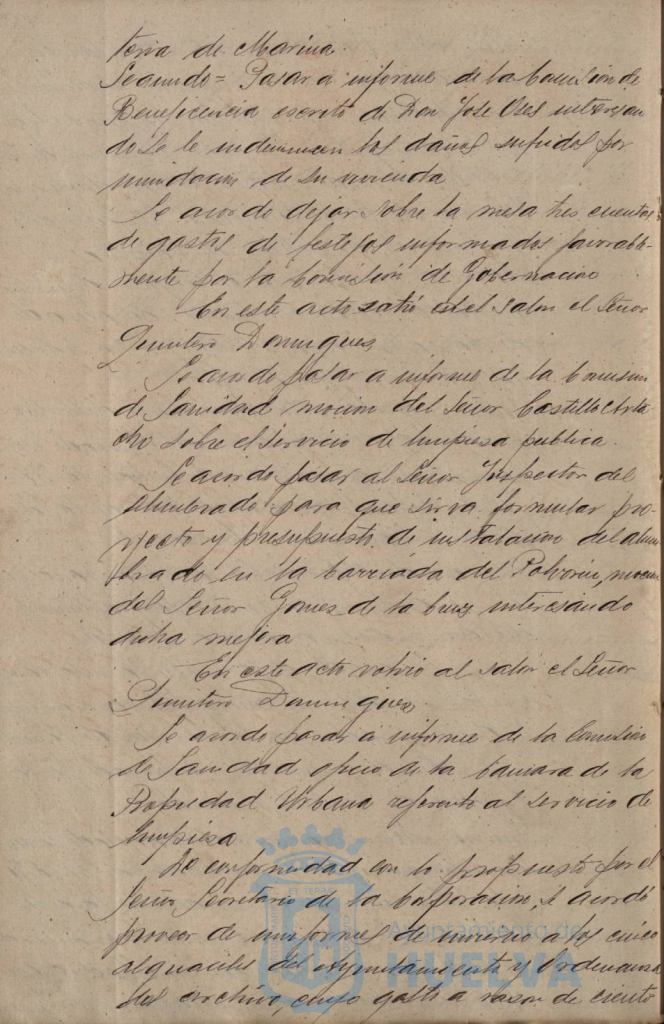 teria de Marina.
Segundo = Pasar a informe de la Comisión de
Beneficencia escrito de Don José Oses interesan
do se le indemnicen los daños sufridos por
inundación de su vivienda
Se acordo dejar sobre la mesa tres cuentas
de gastos de festejos informados favorable-
mente por la Comisión de Gobernacion
En este acto salió del salon el Señor
Quintero Dominguez
Se acordo pasar a informe de la Comision
de Sanidad mocion del Señor Castillo
sobre el servicio de limpiesa publica.
Se acordo pasar al Señor Inspector del
Alumbrado para que sirva formular pro-
yecto y presupuesto de instalacion del alum
brado en la barriada del Polvorin, mocion
del Señor Gomez de la Cruz interesando
dicha mejora
En este acto volvio al salon el Señor
Quintero Dominguez.
Se acordo pasar a informe de la Comision
de Sanidad oficio de la Camara de la
Propiedad Urbana referente al servicio de
limpiesa
De conformidad con lo propuesto por el
Señor Secretario de la Corporacion, se acordó
proveer de uniformes de invierno a los cinco
alguaciles del Ayuntamiento y Ordenanza
del archivo, cuyo gasto a razon de ciento
Ayuntamiento de
HUELVA